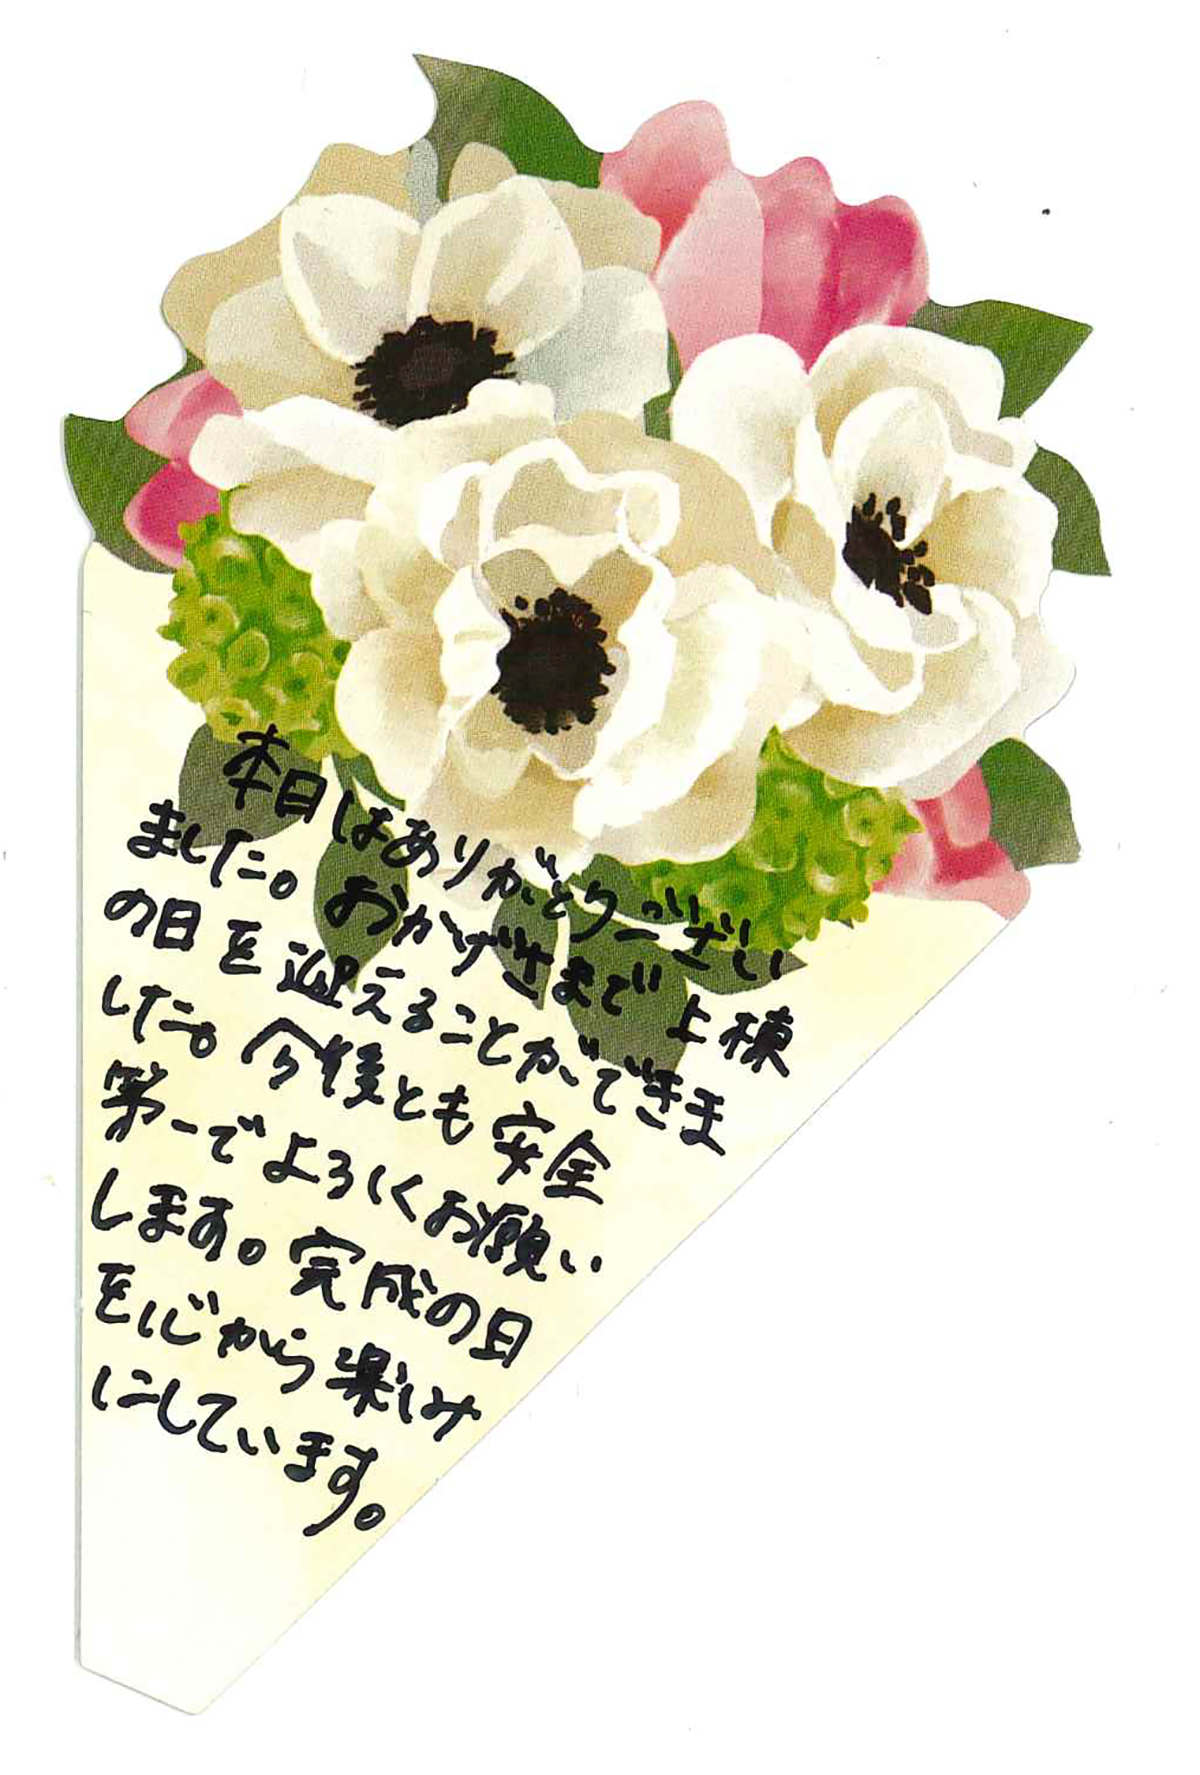 本日はありがとうござい
ました。おかげさまで上棟
の日を迎えることができま
した。今後とも安全
第一でよろしくお願い
します。完成の日
を心から楽しみ
にしています。